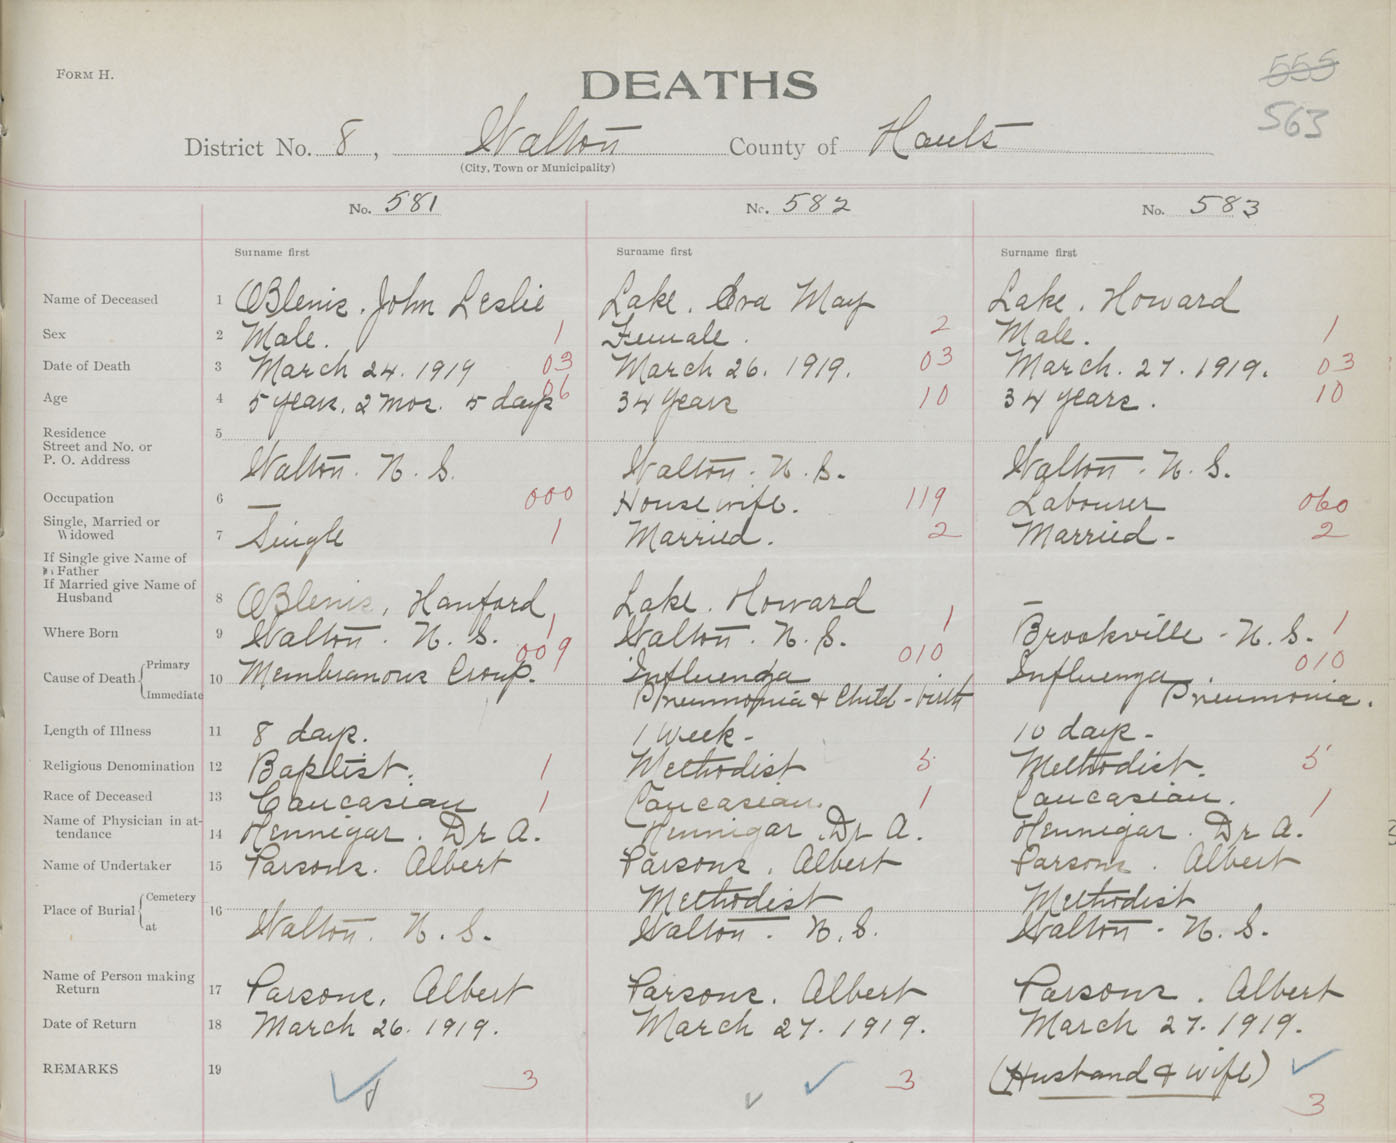 FORM H.
DEATHS
555
563
District No. 8, Walton County of Hants
(City, Town or Municipality)
No. 581 No. 582 No. 583
Surname first Surname first Surname first
Name of Deceased 1 OBlenis. John Leslie Lake. Eva May Lake. Howard
Sex 2 Male. 1 Female. 2 Male. 1
Date of Death 3 March 24. 1919 03 March 26. 1919. 03 March. 27. 1919. 03
Age 4 5 years. 2 mos. 5 days 06 34 years 10 34 years. 10
Residence 5
Street and No. or
P. O. Address Walton. N. S. Walton. N. S. Walton. N. S.
Occupation 6 — 000 Housewife. 119 Labourer 060
Single, Married or
Widowed 7 Single 1 Married. 2 Married - 2
If Single give Name of
Father
If Married give Name of
Husband 8 OBlenis, Hanford Lake. Howard —
Where Born 9 Walton. N. S. 1 Walton. N. S. 1 Brookville - N. S. 1
Cause of Death { Primary 10 Membranous Croup. 009 Influenza 010 Influenza. 010
Immediate Pneumonia & Child-birth Pneumonia.
Length of Illness 11 8 days. 1 week - 10 days -
Religious Denomination 12 Baptist. 1 Methodist 5 Methodist. 5
Race of Deceased 13 Caucasian 1 Caucasian. 1 Caucasian. 1
Name of Physician in at-
tendance 14 Hennigar. Dr A. Hennigar. Dr A. Hennigar. Dr A.
Name of Undertaker 15 Parsons. Albert Parsons. Albert Parsons. Albert
Place of Burial { Cemetery 16 Methodist Methodist
at Walton. N. S. Walton. N. S. Walton. N. S.
Name of Person making
Return 17 Parsons. Albert Parsons. Albert Parsons. Albert
Date of Return 18 March 26. 1919. March 27. 1919. March 27. 1919.
REMARKS 19 3 3 (Husband & wife) 3